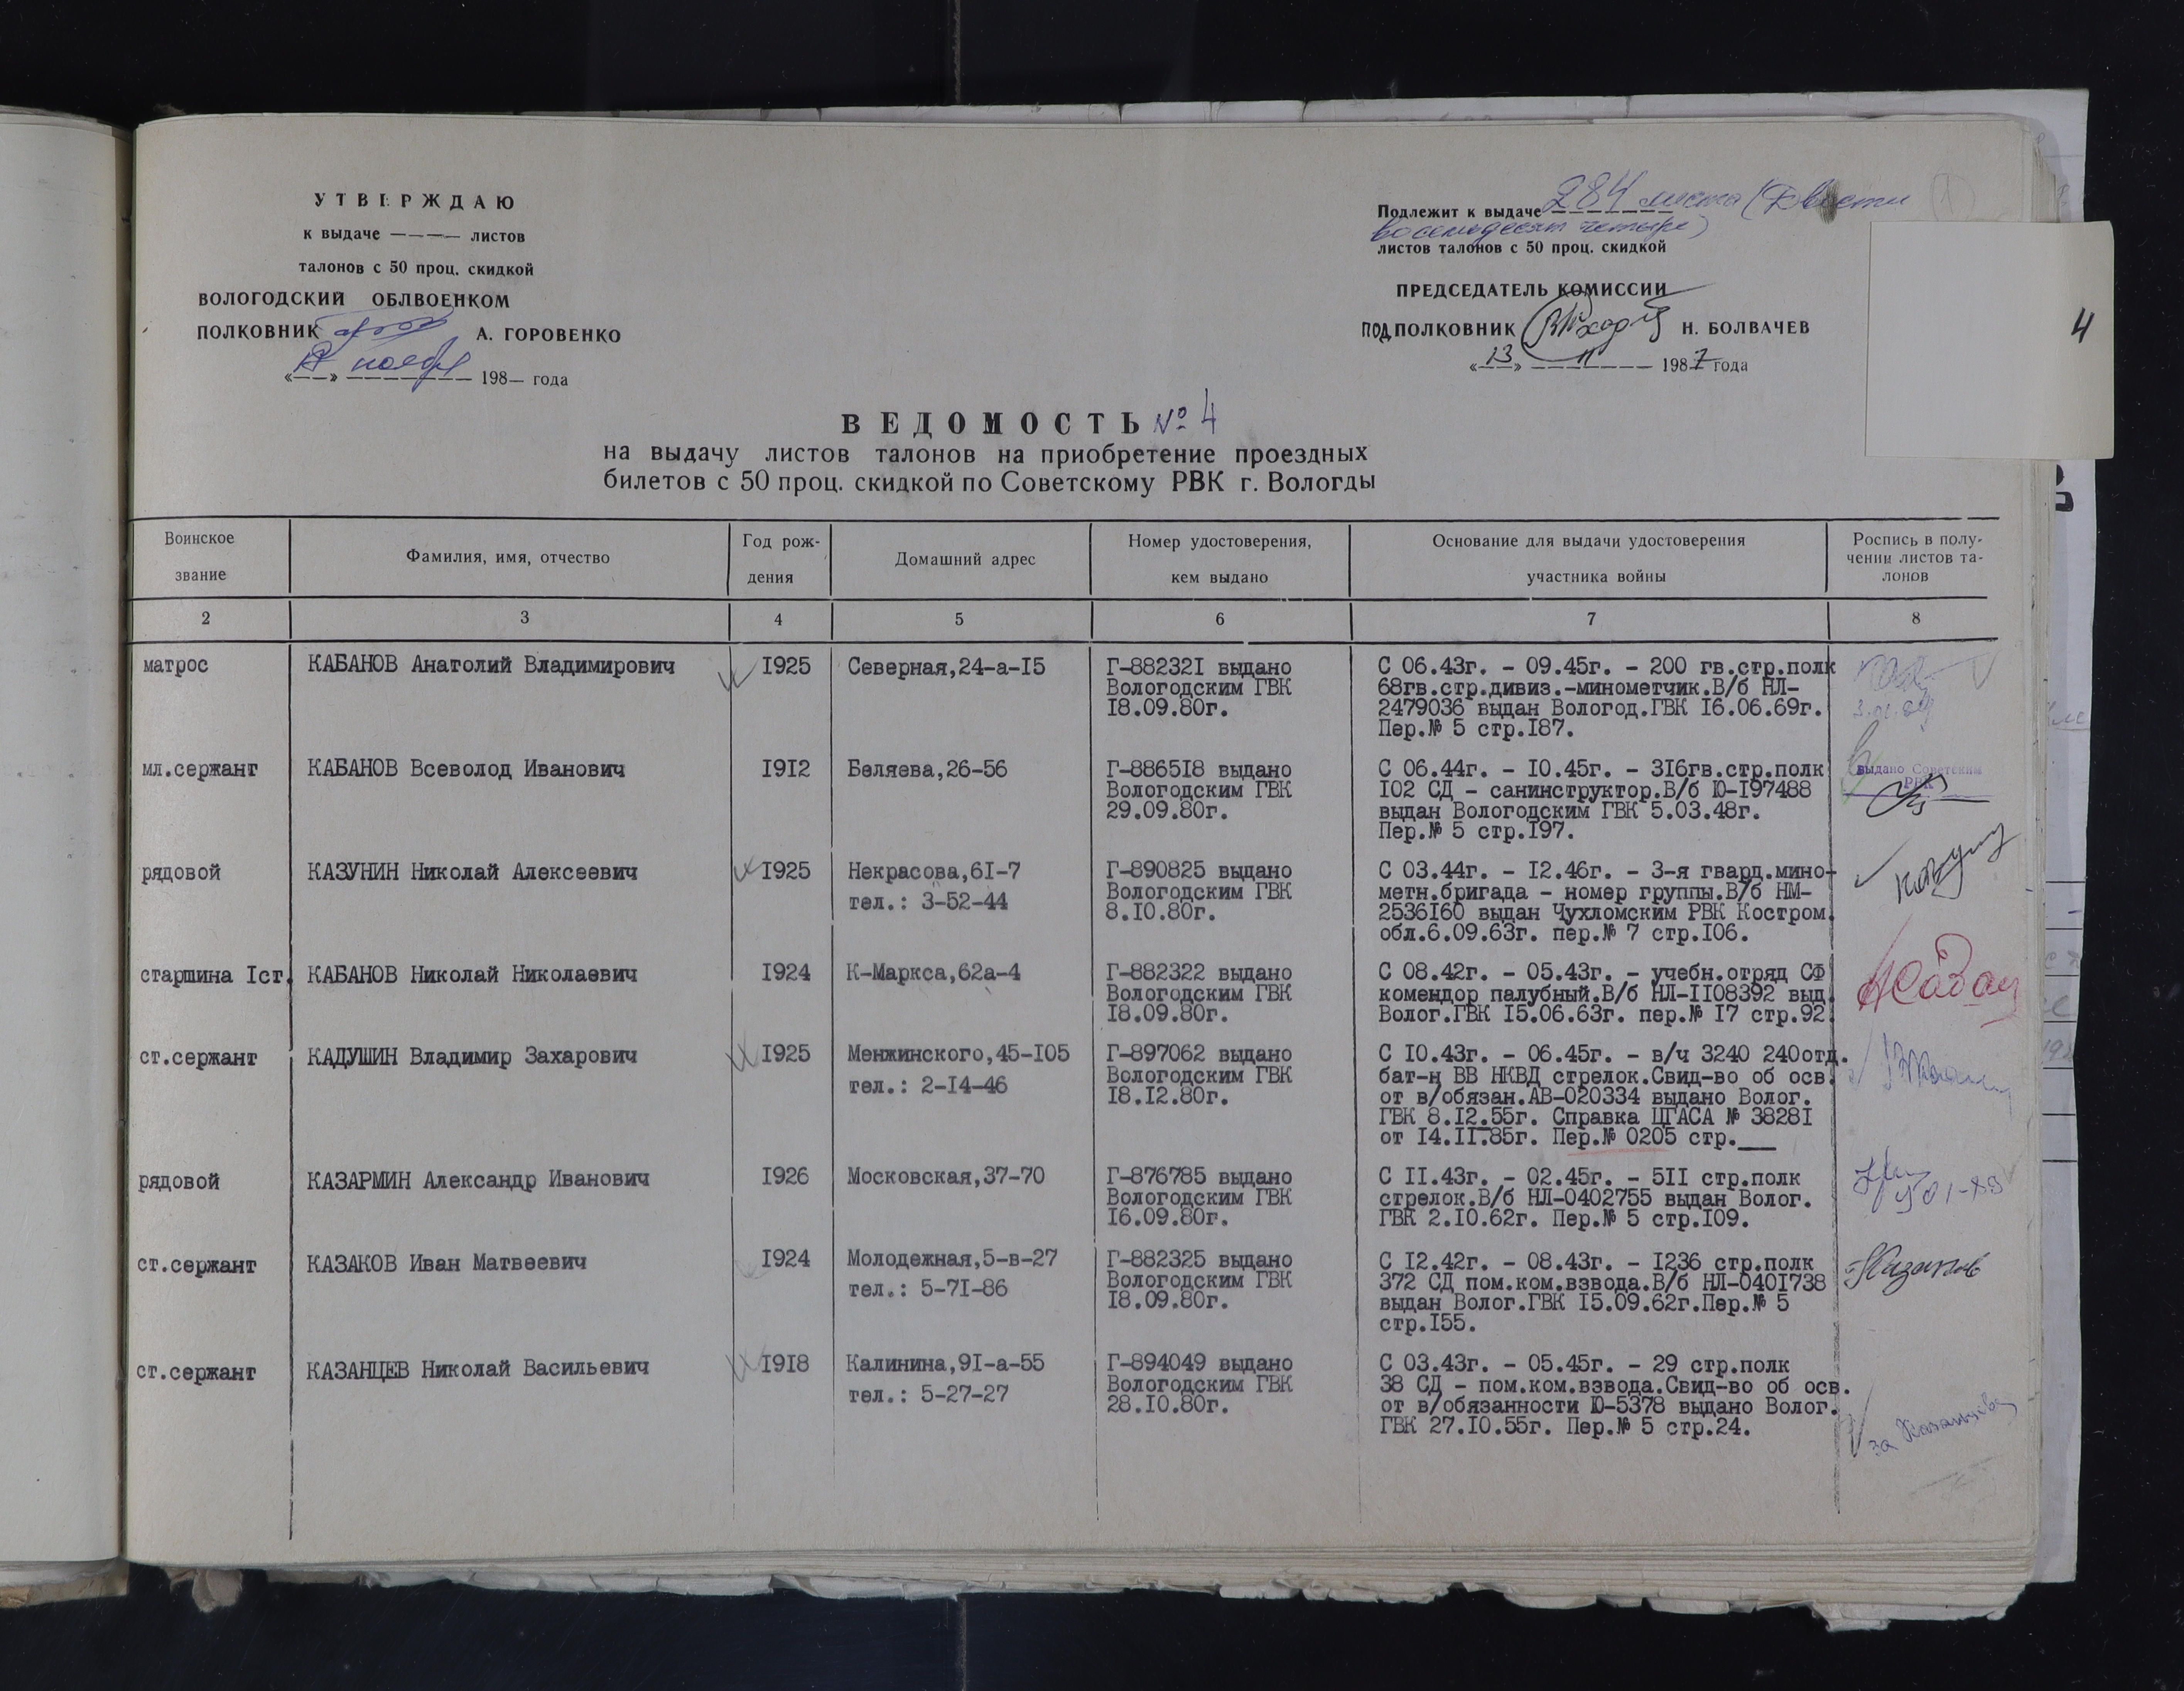 УТВЕРЖДАЮ
к выдаче ———— листов
талонов с 50 проц. скидкой
ВОЛОГОДСКИЙ ОБЛВОЕНКОМ
ПОЛКОВНИК А. ГОРОВЕНКО
«__» ноября 198— года
Подлежит к выдаче 284 листа (Двести
восемьдесят четыре)
листов талонов с 50 проц. скидкой
ПРЕДСЕДАТЕЛЬ КОМИССИИ
ПОДПОЛКОВНИК Н. БОЛВАЧЕВ
«13» 11 1987 года
4
ВЕДОМОСТЬ № 4
на выдачу листов талонов на приобретение проездных
билетов с 50 проц. скидкой по Советскому РВК г. Вологды
Воинское
звание
Фамилия, имя, отчество
Год рож-
дения
Домашний адрес
Номер удостоверения,
кем выдано
Основание для выдачи удостоверения
участника войны
Роспись в полу-
чении листов та-
лонов
2 3 4 5 6 7 8
матрос КАБАНОВ Анатолий Владимирович I925 Северная,24-а-I5 Г-88232I выдано С 06.43г. - 09.45г. - 200 гв.стр.полк
Вологодским ГВК 68гв.стр.дивиз.-минометчик.В/б НЛ-
I8.09.80г. 2479036 выдан Вологод.ГВК I6.06.69г.
Пер.№ 5 стр.I87.
мл.сержант КАБАНОВ Всеволод Иванович I9I2 Беляева,26-56 Г-8865I8 выдано С 06.44г. - I0.45г. - 3I6гв.стр.полк выдано Советским
Вологодским ГВК I02 СД - санинструктор.В/б Ю-I97488 РВК
29.09.80г. выдан Вологодским ГВК 5.03.48г.
Пер.№ 5 стр.I97.
рядовой КАЗУНИН Николай Алексеевич I925 Некрасова,6I-7 Г-890825 выдано С 03.44г. - I2.46г. - 3-я гвард.мино-
тел.: 3-52-44 Вологодским ГВК метн.бригада - номер группы.В/б НМ-
8.I0.80г. 2536I60 выдан Чухломским РВК Костром.
обл.6.09.63г. пер.№ 7 стр.I06.
старшина Iст. КАБАНОВ Николай Николаевич I924 К-Маркса,62а-4 Г-882322 выдано С 08.42г. - 05.43г. - учебн.отряд СФ
Вологодским ГВК комендор палубный.В/б НЛ-II08392 выд.
I8.09.80г. Волог.ГВК I5.06.63г. пер.№ I7 стр.92.
ст.сержант КАДУШИН Владимир Захарович I925 Менжинского,45-I05 Г-897062 выдано С I0.43г. - 06.45г. - в/ч 3240 240отд.
тел.: 2-I4-46 Вологодским ГВК бат-н ВВ НКВД стрелок.Свид-во об осв.
I8.I2.80г. от в/обязан.АВ-020334 выдано Волог.
ГВК 8.I2.55г. Справка ЦГАСА № 3828I
от I4.II.85г. Пер.№ 0205 стр.___
рядовой КАЗАРМИН Александр Иванович I926 Московская,37-70 Г-876785 выдано С II.43г. - 02.45г. - 5II стр.полк
Вологодским ГВК стрелок.В/б НЛ-0402755 выдан Волог.
I6.09.80г. ГВК 2.I0.62г. Пер.№ 5 стр.I09.
ст.сержант КАЗАКОВ Иван Матвеевич I924 Молодежная,5-в-27 Г-882325 выдано С I2.42г. - 08.43г. - I236 стр.полк
тел.: 5-7I-86 Вологодским ГВК 372 СД пом.ком.взвода.В/б НЛ-040I738
I8.09.80г. выдан Волог.ГВК I5.09.62г.Пер.№ 5
стр.I55.
ст.сержант КАЗАНЦЕВ Николай Васильевич I9I8 Калинина,9I-а-55 Г-894049 выдано С 03.43г. - 05.45г. - 29 стр.полк
тел.: 5-27-27 Вологодским ГВК 38 СД - пом.ком.взвода.Свид-во об осв.
28.I0.80г. от в/обязанности Ю-5378 выдано Волог.
ГВК 27.I0.55г. Пер.№ 5 стр.24.